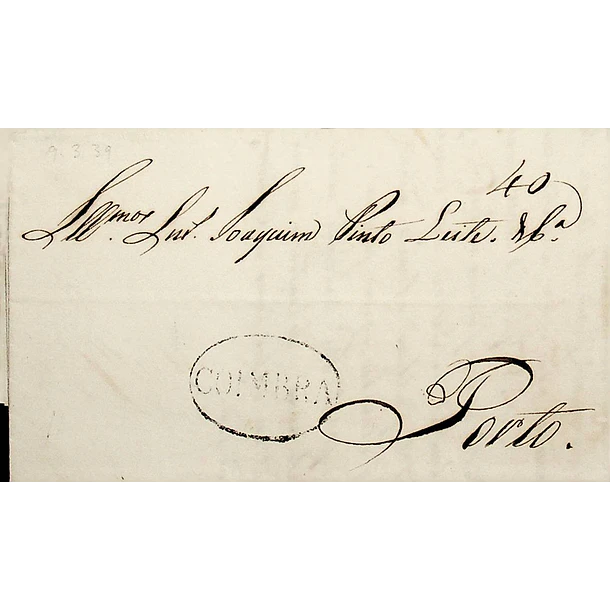 9.3.39
40
Illmos. Snrs. Joaquim Pinto Leite. & Ca.
COIMBRA
Porto.